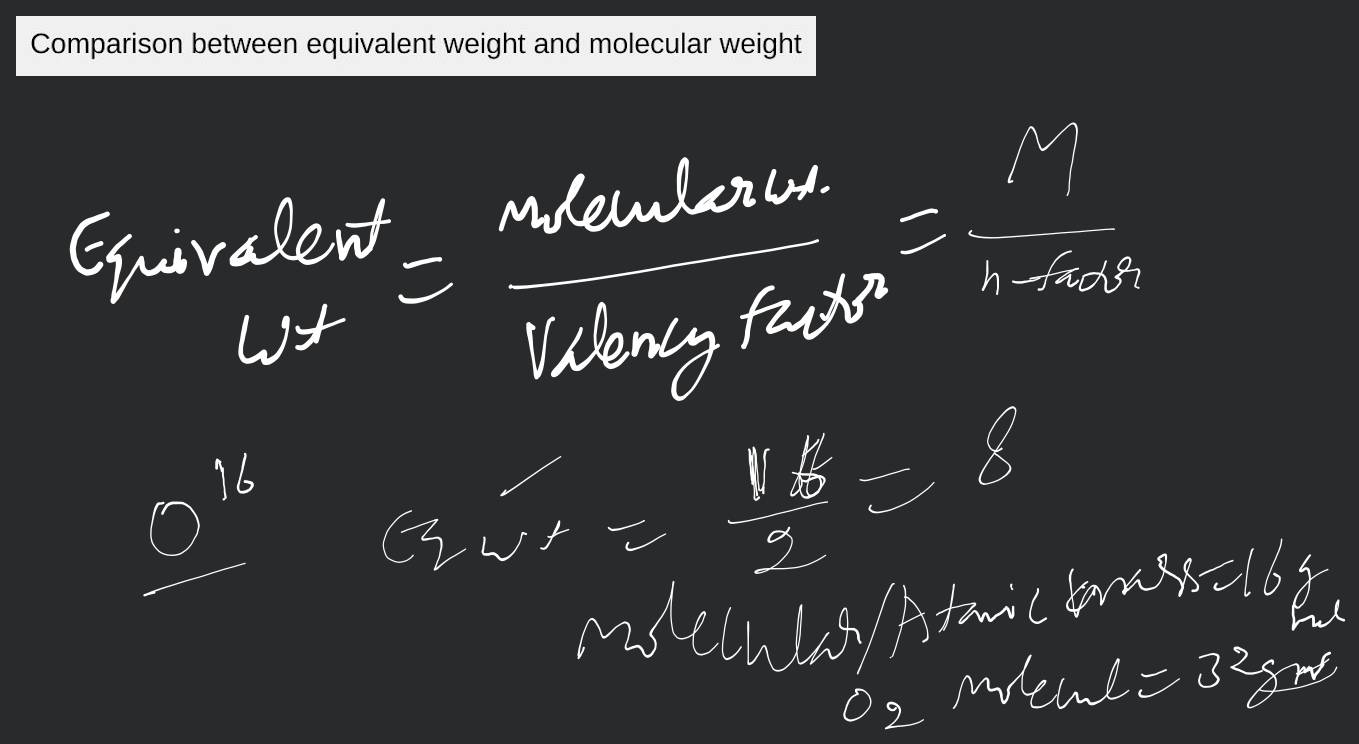 Comparison between equivalent weight and molecular weight
Equivalent wt = Molecular wt. / Valency factor = M / n-factor
O16 Eq wt = 16 / 2 = 8
Molecular/Atomic mass = 16 g
O2 Molecul = 32 g